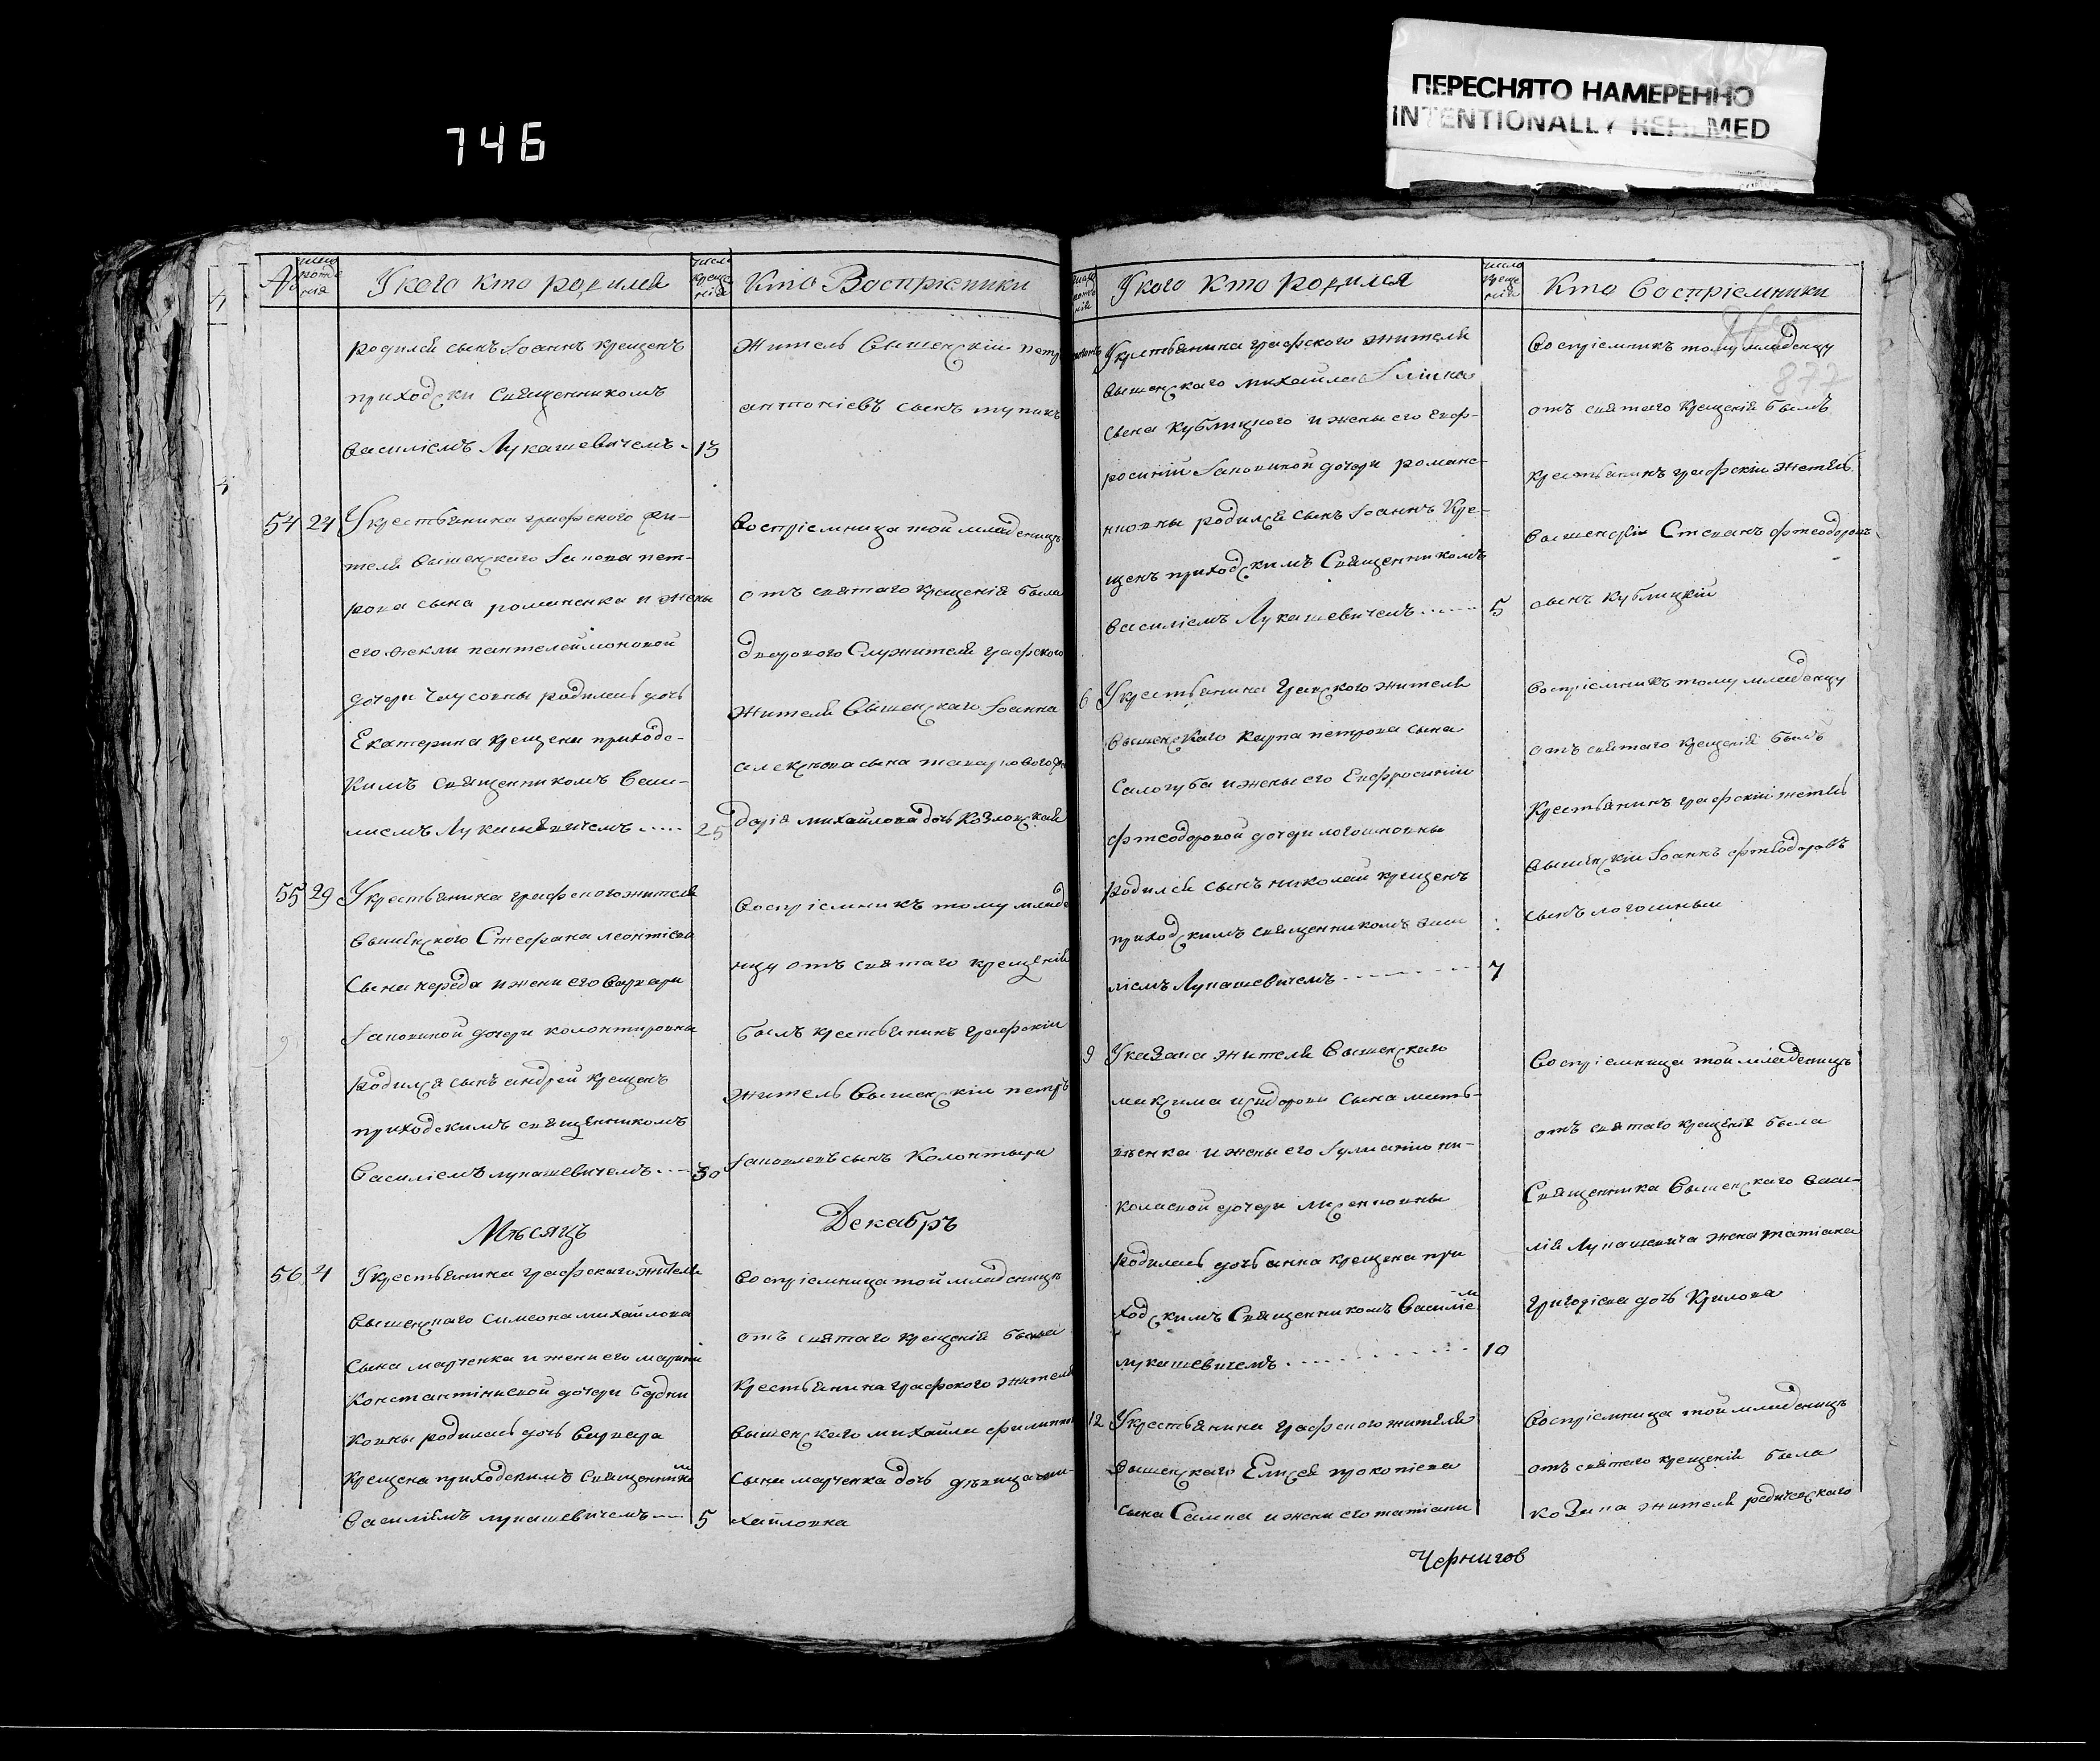 ПЕРЕСНЯТО НАМЕРЕННО
INTENTIONALLY REFILMED
746
№
число рожде нія
У кого кто родился
число креще нія
Кто Воспріємники
родился сынъ Іоаннъ крещенъ
приходски Священникомъ
Василіемъ Лукашевичемъ 13
Житель Вышенскій петръ
антоніевъ сынъ
54 24 У крестьянина графского жи-
теля вышенского Іакова пет-
рова сына романенка и жены
его Феклы пантелеймоновой
дочери родилась дочь
Екатерина крещена приходс-
кимъ священникомъ Васи-
лиемъ Лукашевичемъ 25
Воспріємница той младеницъ
отъ святаго крещенія была
дворового Служителя графского
Жителя Вышенскаго Іоанна
алексѣева сына
дарія михайлова дочь Козловская
55 29 У крестьянина графского жителя
вышенского Стефана леонтіева
Сына переда и жени его варвари
Іаковиной дочери колонтировны
родился сынъ андрей крещенъ
приходскимъ священникомъ
Василіемъ лукашевичемъ 30
Воспріємникъ тому младе
нцу отъ святаго крещенія
былъ крестьянинъ графскій
житель Вышенскій петръ
Іаковлевъ сынъ Колонтыри
Мѣсяцъ Декабръ
56 4 У крестьянина графскаго жителя
Вышенскаго симеона михайлова
Сына марченка и жени его марини
Константиновой дочери
ковны родилась дочь варвара
крещена приходскимъ Священникомъ
Василіемъ лукашевичемъ 5
Воспріємница той младеницъ
отъ святаго крещенія была
крестьянина графского жителя
вышенскаго михайла филиппова
Сына марченка дочь дѣвица ми-
хайловна
У кого кто родился
число креще нія
Кто Воспріємники
877
У крестьянина графского жителя
вышенскаго михайла Іліина
сына Кублицкого и жены его евф-
росиній Іаковиной дочери романе-
нковны родился сынъ Іоаннъ Кре-
щенъ приходскимъ Священникомъ
Василіемъ Лукашевичемъ 5
Воспріємникъ тому младенцу
отъ святаго крещенія былъ
крестьянинъ графскій житель
Вышенскій Степанъ фтеодоровъ
сынъ Кублицкій
6 У крестьянина Графского жителя
Вышенскаго Карпа петрова сына
Салогуба и жены его Евфросиніи
фтеодоровой дочери логошновны
родился сынъ николай крещенъ
приходскимъ священникомъ васи
ліемъ Лукашевичемъ 7
Воспріємникъ тому младенцу
отъ святаго крещенія былъ
Крестьянинъ графскій житель
вышенскій Іоаннъ фтеодоровъ
сынъ логошный
9 У казака жителя Вышенскаго
максима исидорова Сына матв-
ѣенка и жены его Іуліаніи ни-
колаевой дочери
родилась дочь анна крещена при
ходскимъ Священникомъ Василіемъ
лукашевичемъ 10
Воспріємница той младеницъ
отъ святаго крещенія была
Священника Вышенскаго васи-
лія Лукашевича жена татіана
григоріева дочь Крилова
12 У крестьянина Графского жителя
вышенскаго Елисея прокопіева
сына Салива и жени его татіани
Воспріємница той младеницъ
отъ святаго крещенія была
козака жителя редичевскаго
Чернигов